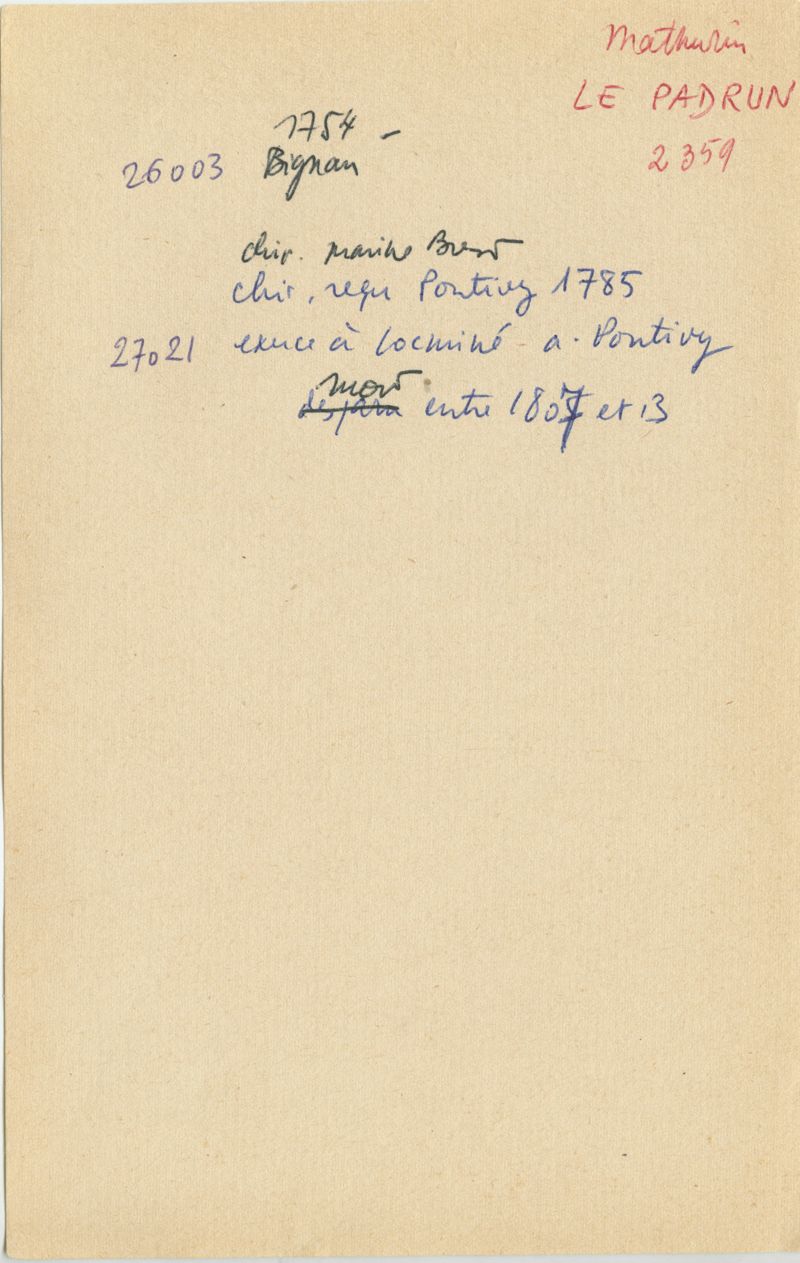 Mathurin
LE PADRUN
2359
1754 -
26003 Bignan
chir. marine Brest
chir. reçu Pontivy 1785
27021 exerce à Locminé - a. Pontivy
mort
entre 1807 et 13